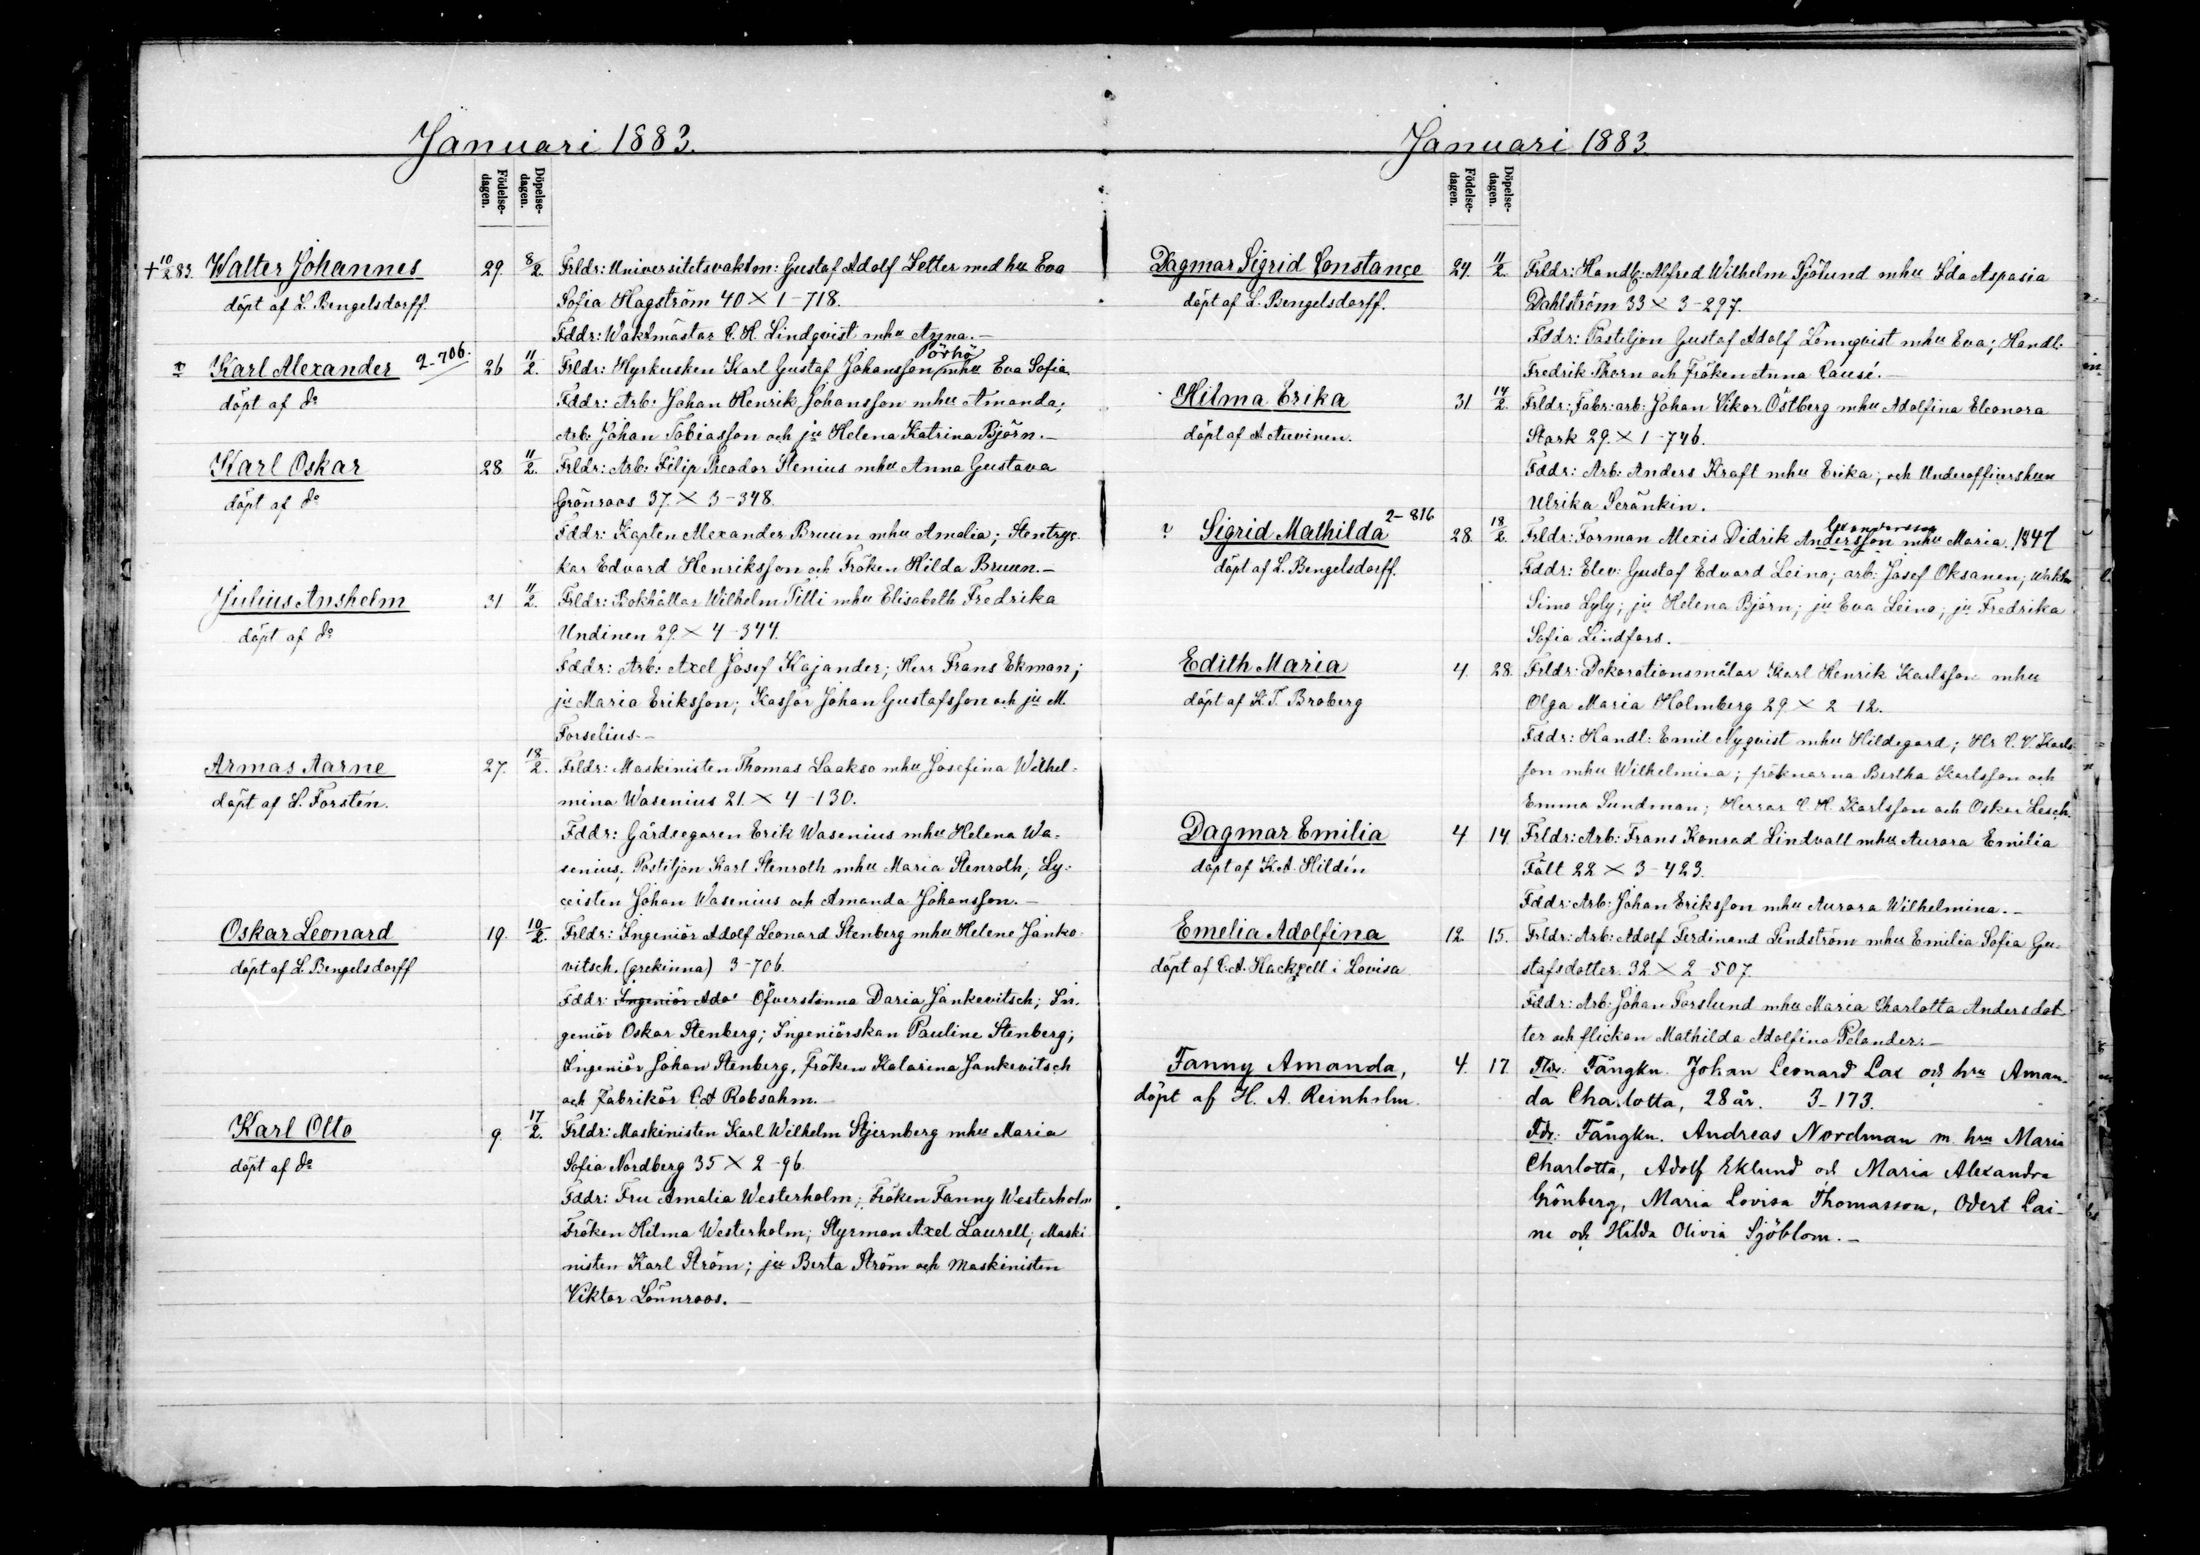 Januari 1883.
Födelse-
dagen.
Döpelse-
dagen.
+ 10/2 83. Walter Johannes 29. 8/2. Frldr: Universitetsvaktm: Gustaf Adolf Setter med hu Eva
döpt af L. Bengelsdorff. Sofia Hagström 40 × 1-718.
Fddr: Waktmästar C. H. Lindqvist mhu Agna.-
Karl Alexander 2-706. 26 11/2. Frldr: Hyrkusken Karl Gustaf Johansson Örhö mhu Eva Sofia
döpt af do Fddr: Arb: Johan Henrik Johansson mhu Amanda;
Arb: Johan Tobiasson och ju Helena Katrina Björn.-
Karl Oskar 28. 11/2. Frldr: Arb: Filip Theodor Stenius mhu Anna Gustava
döpt af do Grönroos 37. × 3-348.
Fddr: Kapten Alexander Bruun mhu Amalia; Stentryc-
kar Edvard Henriksson och Fröken Hilda Bruun.-
Julius Anshelm 31 11/2. Frldr: Bokhållar Wilhelm Titti mhu Elisabeth Fredrika
döpt af do Undinen 29. × 4-344.
Fddr: Arb: Axel Josef Kajander; Herr Frans Ekman;
ju Maria Eriksson; Kassör Johan Gustafsson och ju M.
Forselius.-
Armas Aarne 27. 18/2. Frldr: Maskinisten Thomas Laakso mhu Josefina Wilhel-
döpt af L. Forstén. mina Wasenius 21. × 4-130.
Fddr: Gårdsegaren Erik Wasenius mhu Helena Wa-
senius; Postiljon Karl Stenroth mhu Maria Stenroth; Ly-
ceisten Johan Wasenius och Amanda Johansson.-
Oskar Leonard 19. 10/2. Frldr: Ingeniör Adolf Leonard Stenberg mhu Helene Janko-
döpt af L. Bengelsdorff vitsch. (grekinna) 3-706.
Fddr: Ingeniör Ado Öfverstinna Daria Jankevitsch; In-
geniör Oskar Stenberg; Ingeniörskan Pauline Stenberg;
Ingeniör Johan Stenberg, fröken Katarina Jankevitsch
och Fabrikör C A Robsahm.-
Karl Otto 9. 17/2. Frldr: Maskinisten Karl Wilhelm Stjernberg mhu Maria
döpt af do Sofia Nordberg 35 × 2-96.
Fddr: Fru Amalia Westerholm; Fröken Fanny Westerholm
Fröken Hilma Westerholm; Styrman Axel Laurell; Maski
nisten Karl Ström; ju Berta Ström och Maskinisten
Viktor Lönnroos.-
Januari 1883
Födelse-
dagen.
Döpelse-
dagen.
Dagmar Sigrid Constance 24. 11/2. Frldr: Handl: Alfred Wilhelm Sjölund mhu Ida Aspasia
döpt af L. Bengelsdorff. Dahlström 33 × 3-297.
Fddr: Postiljon Gustaf Adolf Lönnqvist mhu Eva; Handl:
Fredrik Thorn och fröken Anna Causé.-
Hilma Erika 31 14/2. Frldr: Fabr: arb: Johan Vikor Östberg mhu Adolfina Eleonora
döpt af A Auvinen. Stark 29. × 1-746.
Fddr: Arb: Anders Kraft mhu Erika; och Underofficershun
Ulrika Seränkin.
Sigrid Mathilda 2-816 28. 18/2. Frldr: Forman Alexis Didrik Andersson mhu Maria. 1847
döpt af L. Bengelsdorff. Fddr: Elev: Gustaf Edvard Leino; arb: Josef Oksanen; Waktm
Simo Lyly; ju Helena Björn; ju Eva Leino; ju Fredrika
Sofia Lindfors.
Edith Maria 4. 28. Frldr: Dekorationsmålar Karl Henrik Karlsson mhu
döpt af K. T. Broberg Olga Maria Holmberg 29 × 2-12.
Fddr: Handl: Emil Nyqvist mhu Hildegard; Hr C. V. Karls-
son mhu Wilhelmina; fröknarna Bertha Karlsson och
Emma Sundman; Herrar C. H. Karlsson och Oskar Lesch.
Dagmar Emilia 4 14. Frldr: Arb: Frans Konrad Lindvall mhu Aurora Emilia
döpt af K. A. Hildén Fält 22 × 3-423.
Fddr: Arb: Johan Eriksson mhu Aurora Wilhelmina.-
Emelia Adolfina 12. 15. Frldr: Arb: Adolf Ferdinand Lindström mhu Emilia Sofia Gu-
döpt af C. A. Hackzell i Lovisa stafsdotter. 32 × 2-507.
Fddr: Arb: Johan Forslund mhu Maria Charlotta Andersdot-
ter och flickan Mathilda Adolfina Pelander.-
Fanny Amanda, 4. 17. Fldr: Fångkn. Johan Leonard Lax och hru Aman-
döpt af H. A. Reinholm. da Charlotta, 28 år. 3-173.
Fdr: Fångkn. Andreas Nordman m. hru Maria
Charlotta, Adolf Eklund och Maria Alexandra
Grönberg, Maria Lovisa Thomasson, Odert Lai-
ne och Hilda Olivia Sjöblom.-